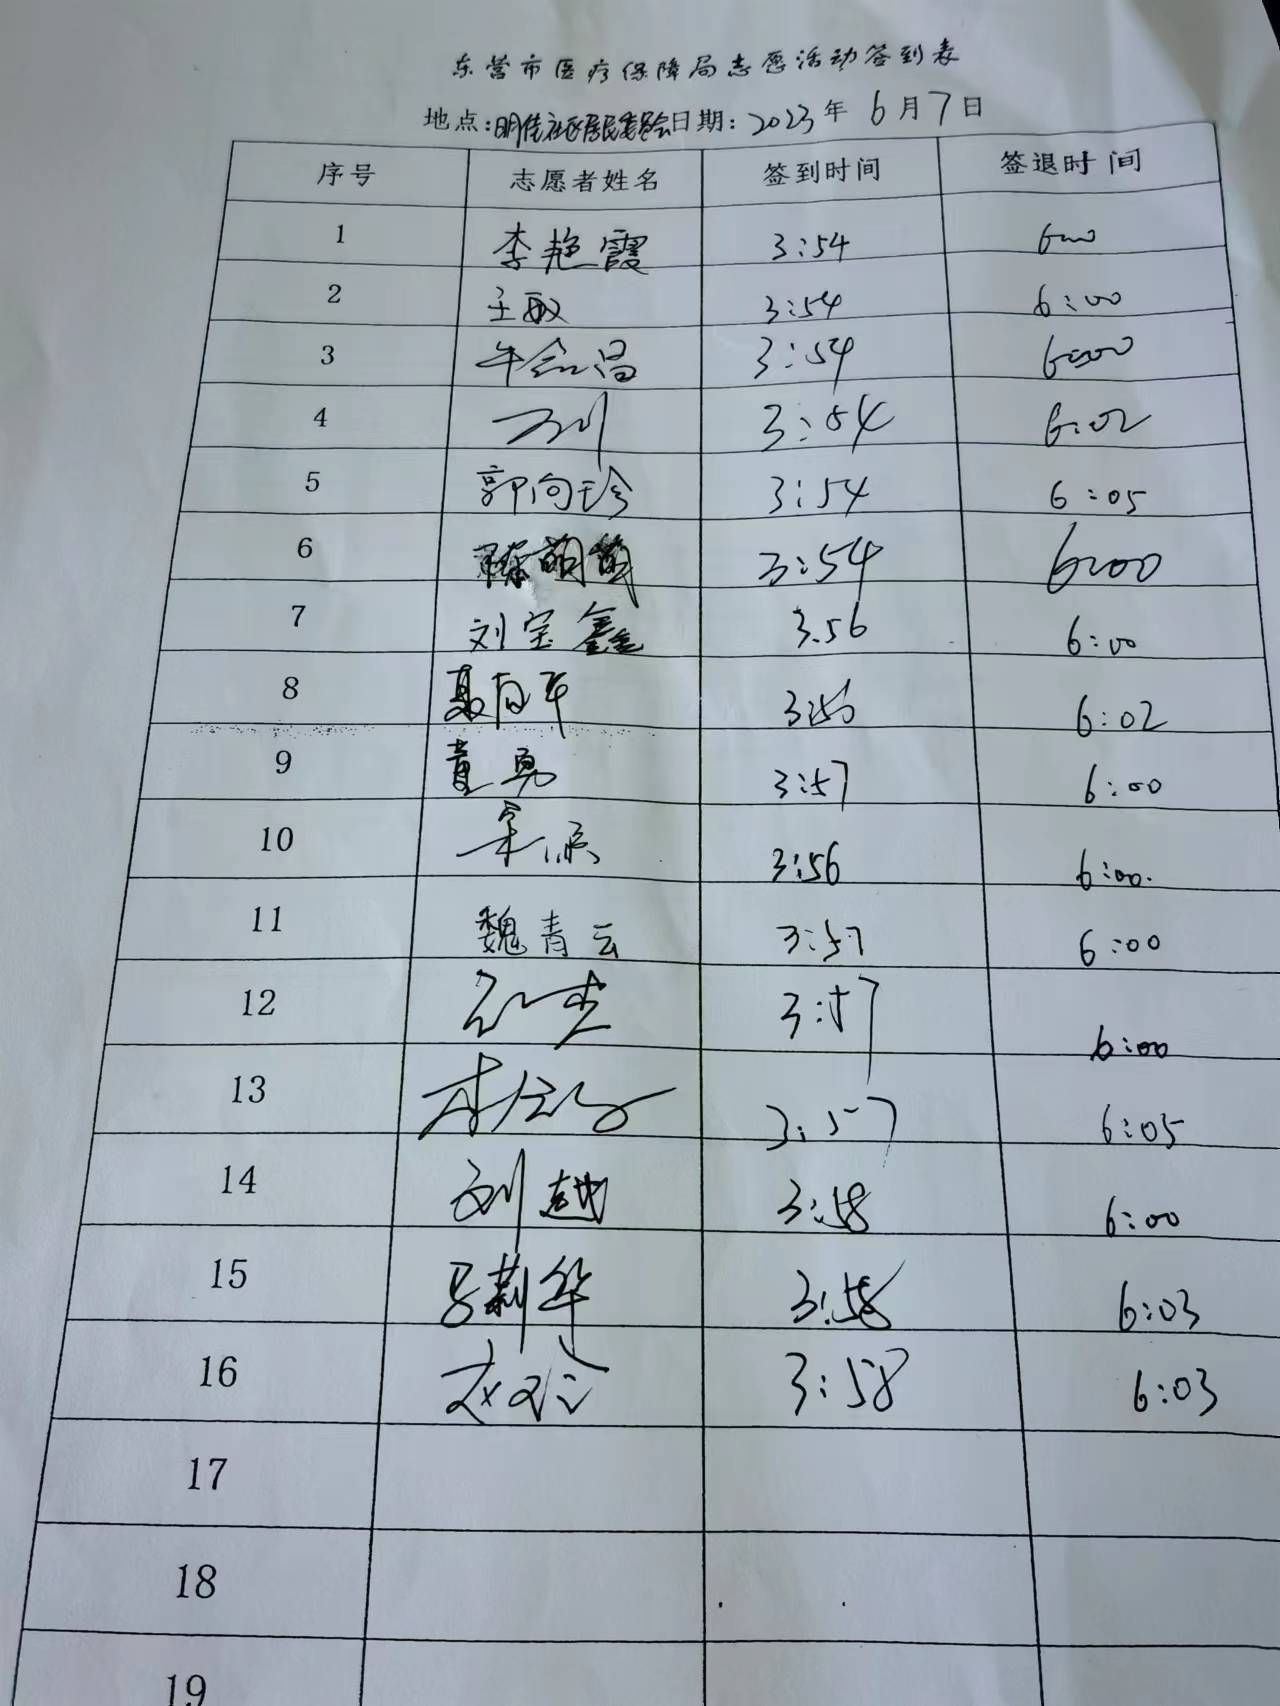 东营市医疗保障局志愿活动签到表
地点:明佳社区居民委员会日期:2023年6月7日
序号 志愿者姓名 签到时间 签退时间
1 李艳霞 3:54 6:00
2 王敏 3:54 6:00
3 3:54 6:00
4 3:54 6:02
5 郭向珍 3:54 6:05
6 陈萌萌 3:54 6:00
7 刘宝鑫 3.56 6:00
8 聂向平 3:56 6:02
9 董勇 3:57 6:00
10 3:56 6:00.
11 魏青云 3:57 6:00
12 3:57 6:00
13 3:57 6:05
14 刘越 3:58 6:00
15 马莉华 3:58 6:03
16 3:58 6:03
17
18
19